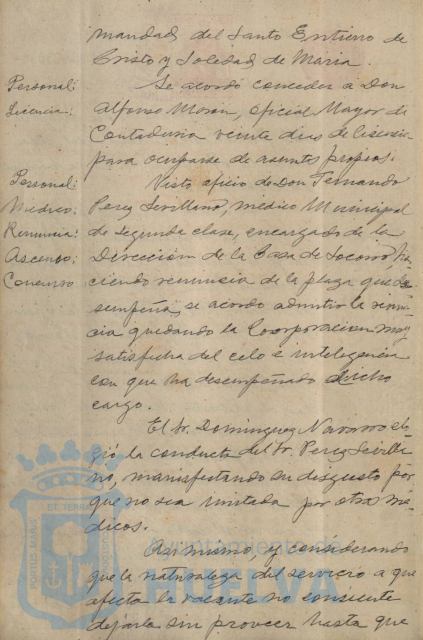 mandad del Santo Entierro de
Cristo y Soledad de Maria.
Personal:
Licencia:
Se acordó conceder a Don
Alfonso Morán, Oficial Mayor de
Contaduria veinte dias de licencia
para ocuparse de asuntos propios.
Personal:
Médico:
Renuncia:
Ascenso:
Concurso
Visto oficio de Don Fernando
Perez Sevillano, médico Municipal
de segunda clase, encargado de la
Dirección de la Casa de Socorro, ha-
ciendo renuncia de la plaza que de-
sempeña, se acordo admitir la renun-
cia quedando la Corporacion muy
satisfecha del celo e inteligencia
con que ha desempeñado dicho
cargo.
El Sr. Dominguez Navarro elo-
gió la conducta del Sr. Perez Sevilla-
no, manifestando su disgusto por-
que no sea imitada por otros mé-
dicos.
Asi mismo, y considerando
que la naturaleza del servicio a que
afecta la vacante no consiente
dejarla sin proveer hasta que
Ayuntamiento de
HUELVA
PORTUS MARIS
ET TERRAE
CUSTODIA